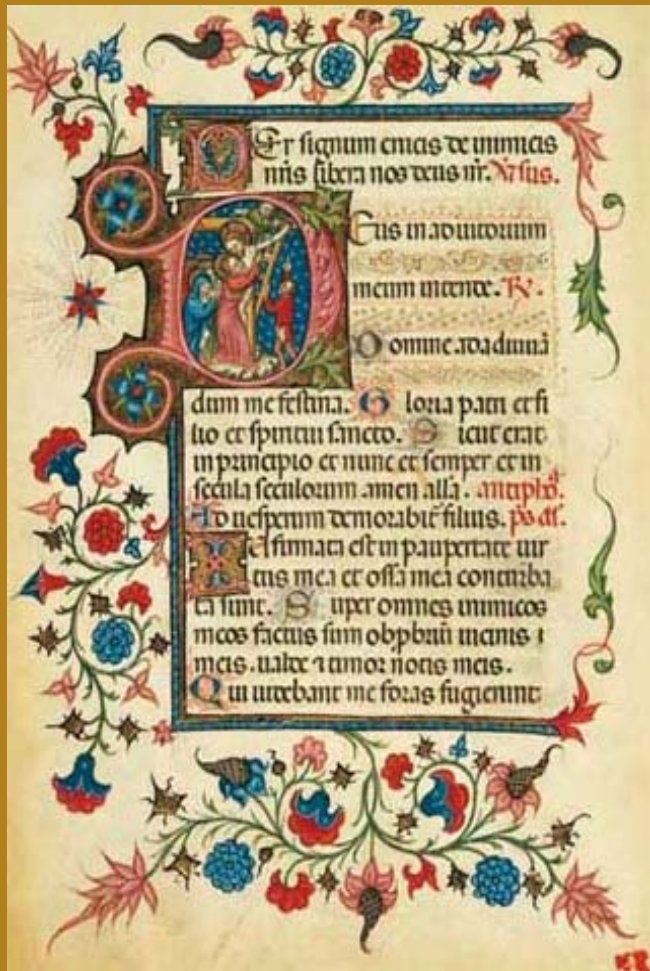 Per signum crucis de inimicis
nris libera nos deus nr. Vrsus.
Deus in adiutorium
meum intende. Rx.
Domine ad adiuuan
dum me festina. Gloria patri et fi
lio et spiritui sancto. Sicut erat
in principio et nunc et semper et in
secula seculorum amen alla. antipho.
Ad uesperum demorabit filius. ps dd.
Infirmata est in paupertate uir
tus mea et ossa mea conturba
ta sunt. Super omnes inimicos
meos factus sum obpbriu uicinis
meis. ualde 7 timor notis meis.
Qui uidebant me foras fugierunt